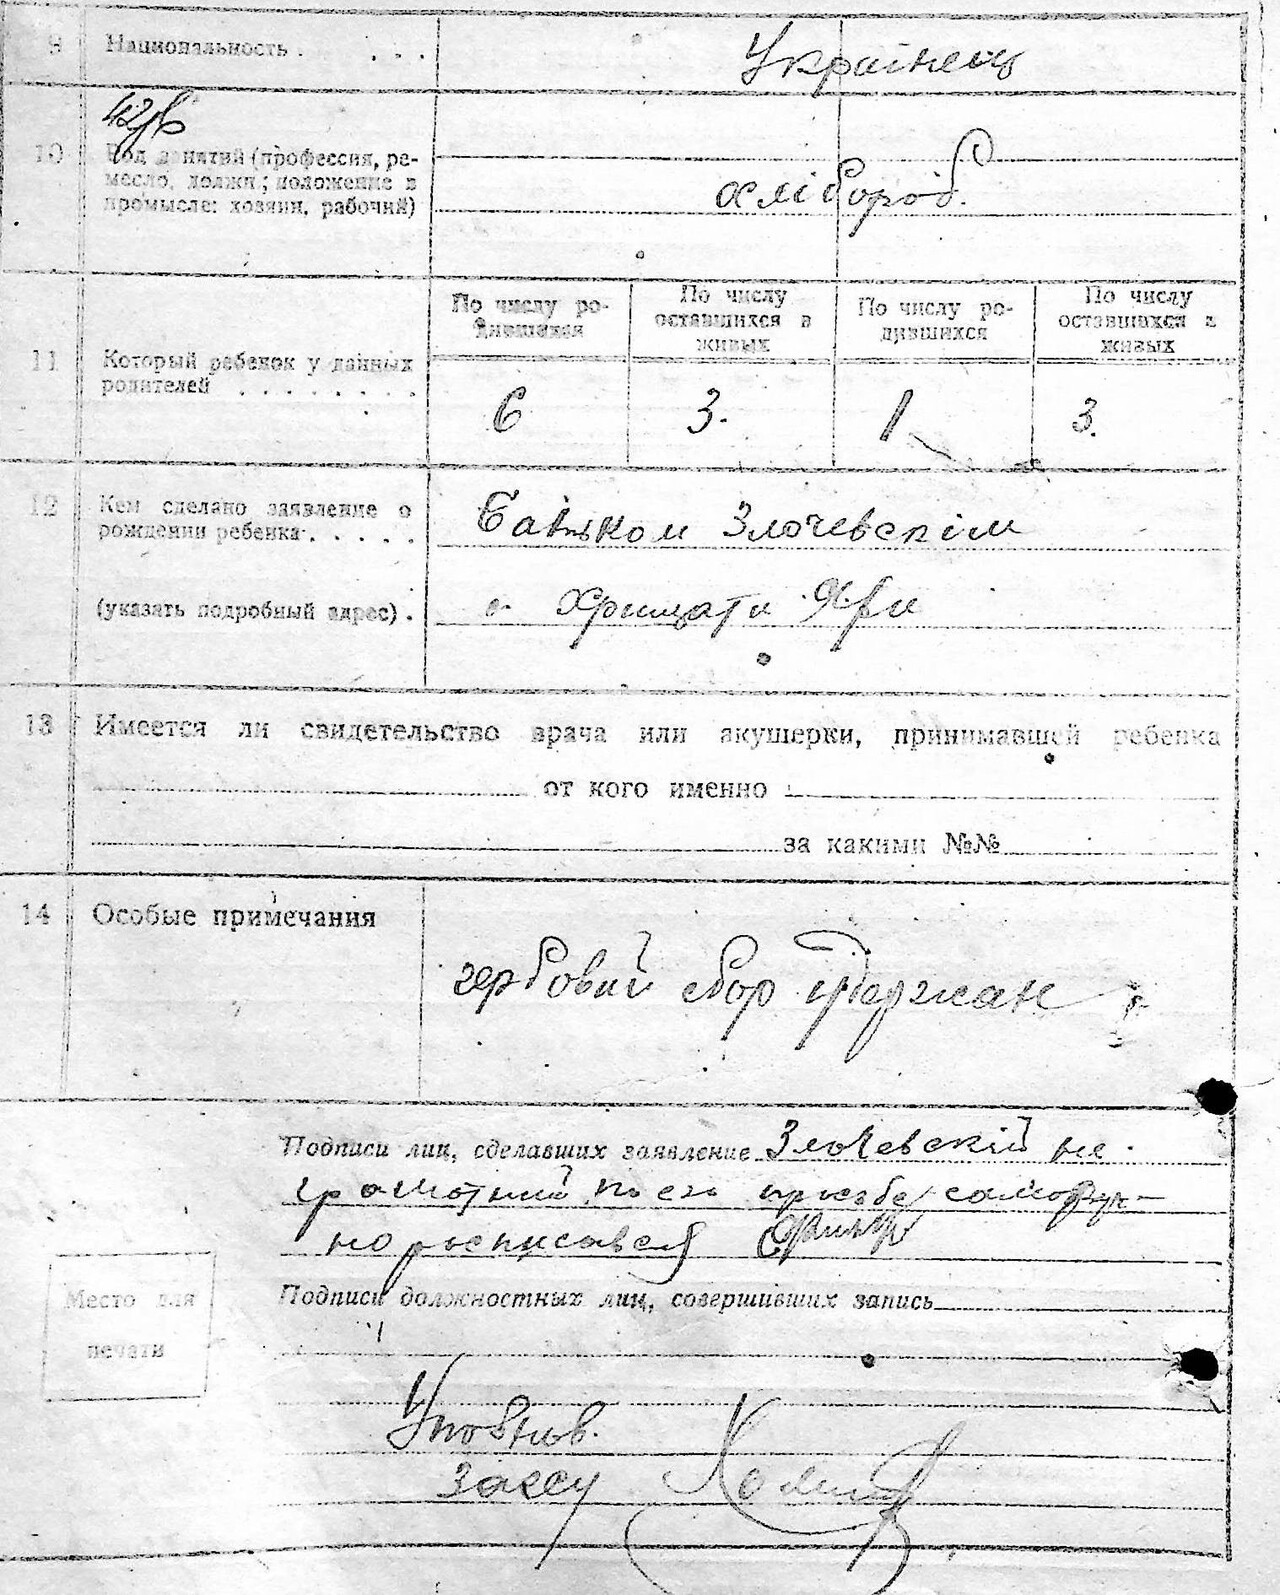 9 Национальность . . . . Українець
42/6
10 Род занятий (профессия, ре-
месло, должн; положение в
промысле: хозяин, рабочий)
хлібороб.
По числу ро-
дившихся
По числу
оставшихся в
живых
По числу ро-
дившихся
По числу
оставшихся в
живых
11 Который ребенок у данных
родителей . . . . . . . .
6 3. 1 3.
12 Кем сделано заявление о
рождении ребенка . . . . .
Батьком Злочевскім
(указать подробный адрес) .
с. Хрищати Яри
13 Имеется ли свидетельство врача или акушерки, принимавшей ребенка
от кого именно
за какими №№
14 Особые примечания
гербовий збор удержан
Подписи лиц, сделавших заявление Злочевскій не-
грамотний по его просьбе саморуч-
но росписався
Подписи должностных лиц, совершивших запись
Место для
печати
Уповнов.
загсу